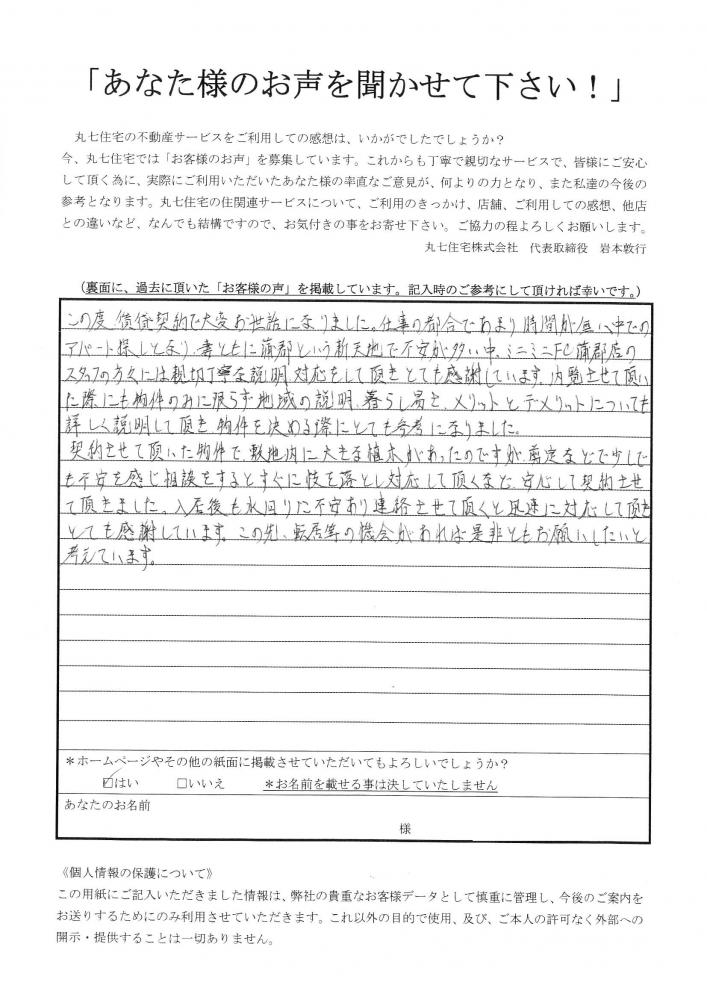 「あなた様のお声を聞かせて下さい！」
丸七住宅の不動産サービスをご利用しての感想は、いかがでしたでしょうか？
今、丸七住宅では「お客様のお声」を募集しています。これからも丁寧で親切なサービスで、皆様にご安心
して頂く為に、実際にご利用いただいたあなた様の率直なご意見が、何よりの力となり、また私達の今後の
参考となります。丸七住宅の住関連サービスについて、ご利用のきっかけ、店舗、ご利用しての感想、他店
との違いなど、なんでも結構ですので、お気付きの事をお寄せ下さい。ご協力の程よろしくお願いします。
丸七住宅株式会社　代表取締役　岩本敦行
（裏面に、過去に頂いた「お客様の声」を掲載しています。記入時のご参考にして頂ければ幸いです。）
この度、賃貸契約で大変お世話になりました。仕事の都合であまり時間が無い中での
アパート探しとなり、妻ともに蒲郡という新天地で不安が多い中、ミニミニFC蒲郡店の
スタッフの方々には親切丁寧な説明、対応をして頂きとても感謝しています。内覧させて頂い
た際にも物件のみに限らず地域の説明、暮らし易さ、メリットとデメリットについても
詳しく説明して頂き、物件を決める際にとても参考になりました。
契約させて頂いた物件で、敷地内に大きな植木があったのですが、剪定などで少しで
も不安を感じ相談をするとすぐに枝を落とし対応して頂くなど、安心して契約させ
て頂きました。入居後も水回りに不安あり連絡させて頂くと迅速に対応して頂き
とても感謝しています。この先、転居等の機会があれば是非ともお願いしたいと
考えています。
＊ホームページやその他の紙面に掲載させていただいてもよろしいでしょうか？
☑はい　□いいえ　＊お名前を載せる事は決していたしません
あなたのお名前
様
《個人情報の保護について》
この用紙にご記入いただきました情報は、弊社の貴重なお客様データとして慎重に管理し、今後のご案内を
お送りするためにのみ利用させていただきます。これ以外の目的で使用、及び、ご本人の許可なく外部への
開示・提供することは一切ありません。